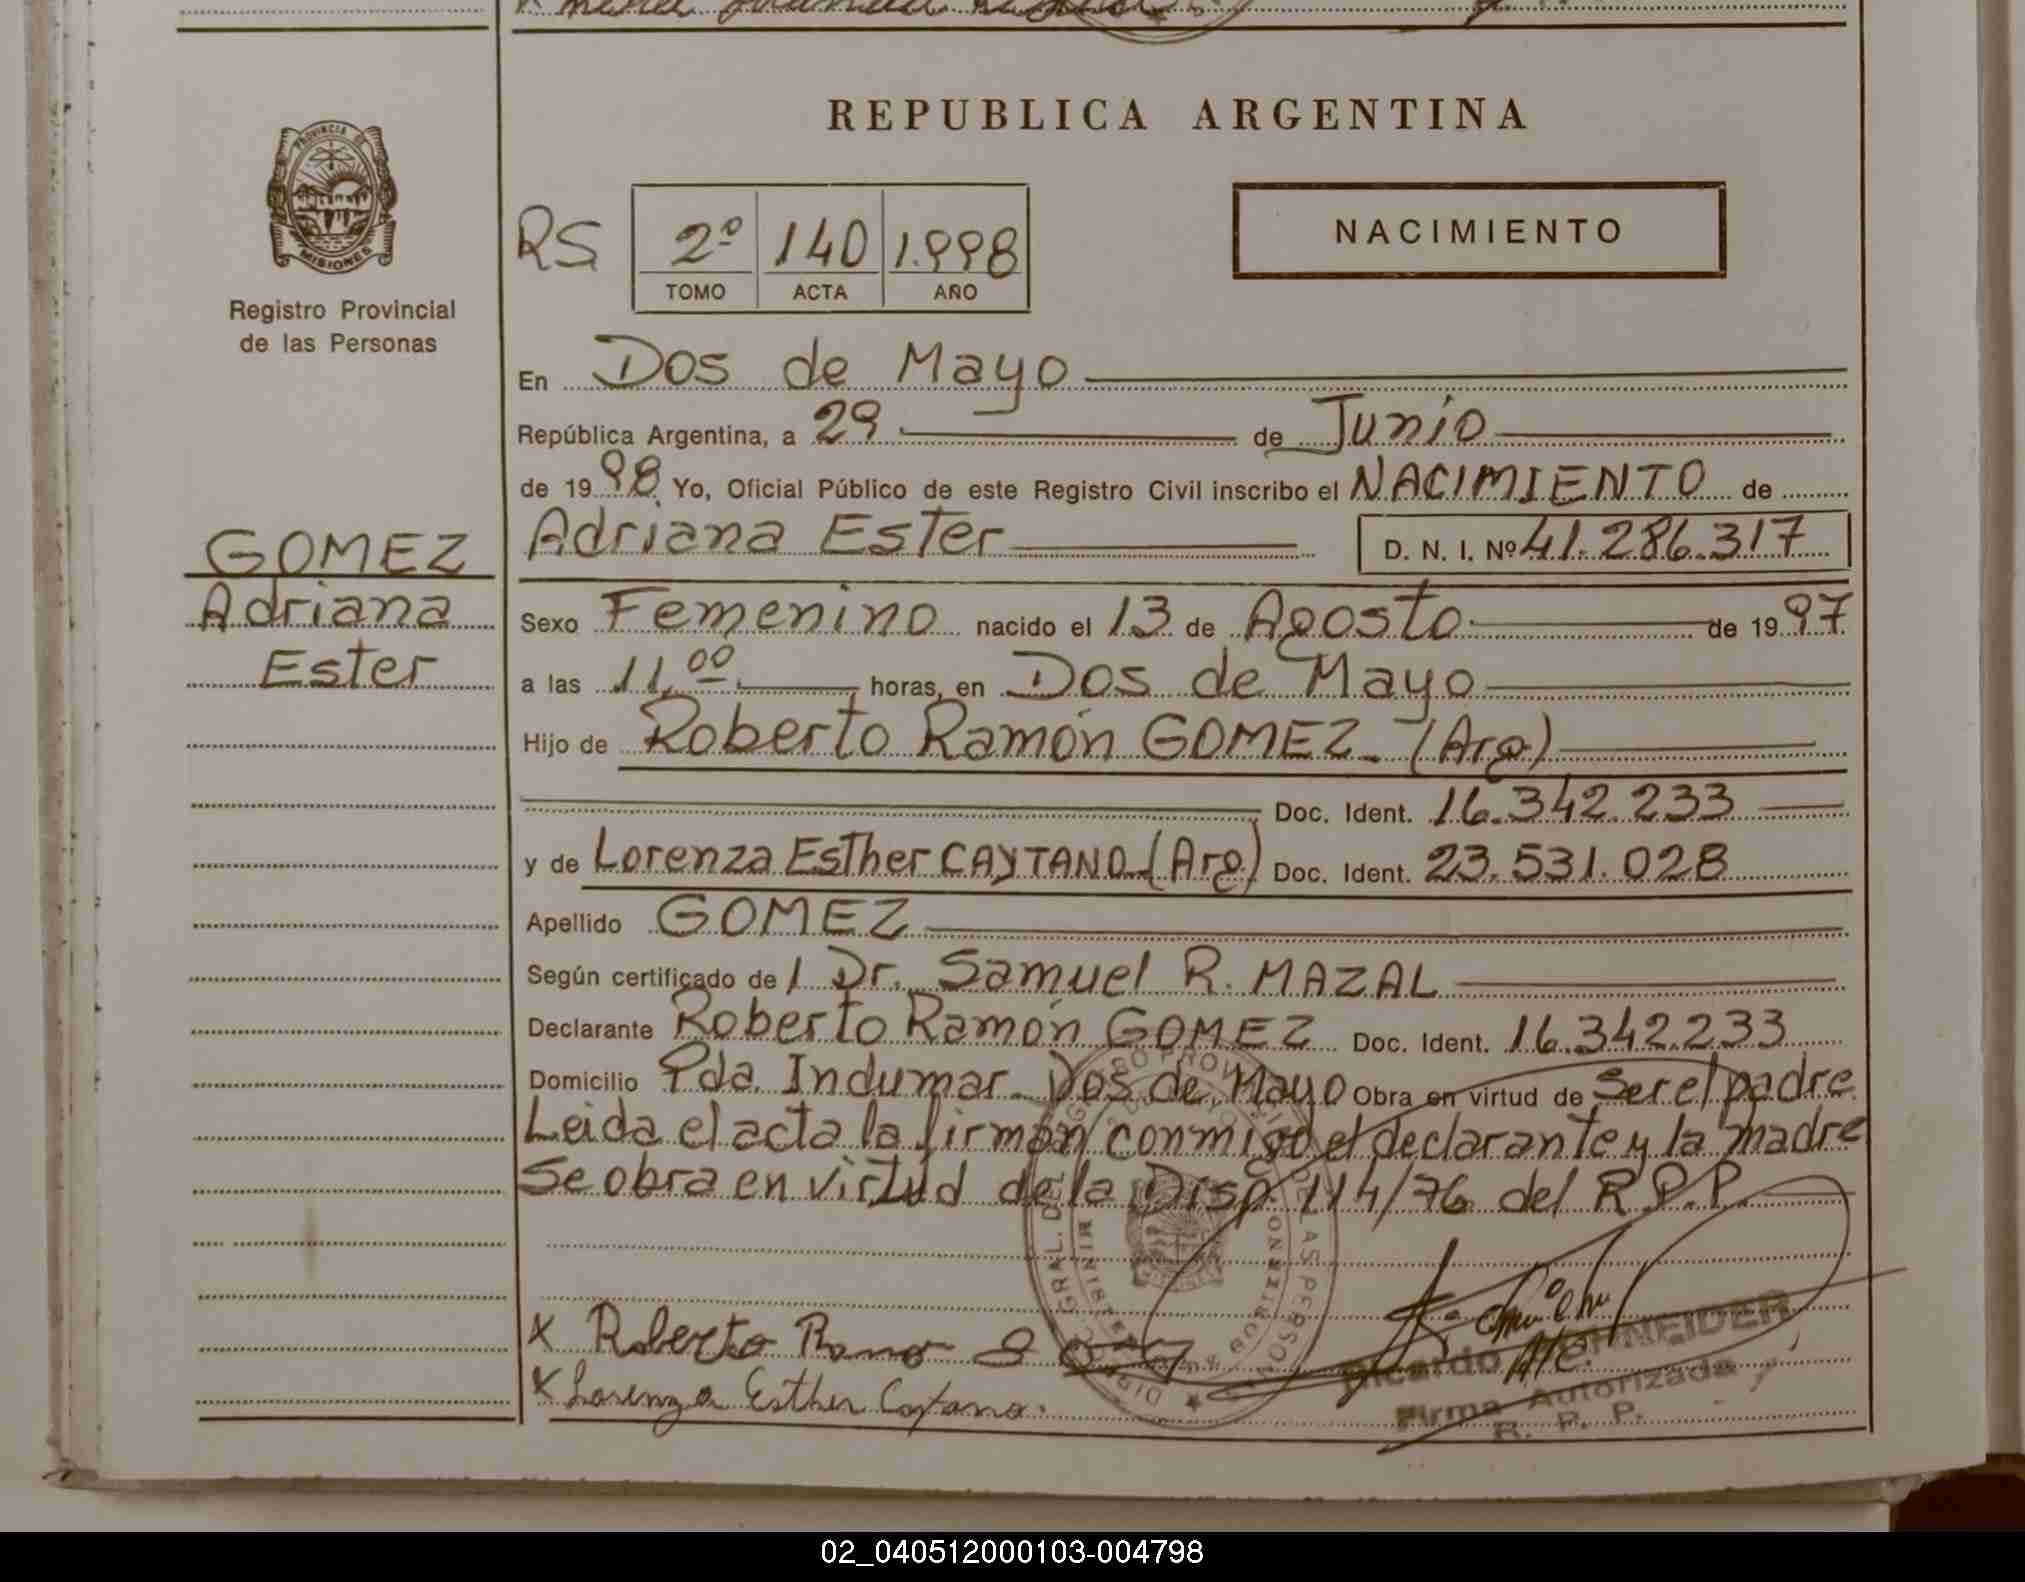 REPUBLICA ARGENTINA
PROVINCIA DE
MISIONES
Registro Provincial
de las Personas
RS 2º 140 1.998
TOMO ACTA AÑO
NACIMIENTO
En Dos de Mayo
República Argentina, a 29 de Junio
de 1998 Yo, Oficial Público de este Registro Civil inscribo el NACIMIENTO de
GOMEZ
Adriana
Ester
Adriana Ester D. N. I. Nº 41.286.317
Sexo Femenino nacido el 13 de Agosto de 1997
a las 11,00 horas, en Dos de Mayo
Hijo de Roberto Ramón GOMEZ - (Arg)
Doc. Ident. 16.342.233
y de Lorenza Esther CAYTANO - (Arg) Doc. Ident. 23.531.028
Apellido GOMEZ
Según certificado de l Dr. Samuel R. MAZAL
Declarante Roberto Ramón GOMEZ Doc. Ident. 16.342.233
Domicilio Pda. Indumar - Dos de Mayo Obra en virtud de Ser el padre
Leida el acta la firman conmigo el declarante y la madre
Se obra en virtud de la Disp. 114/76 del R.P.P.
x Roberto Ramo
x Lorenza Esther Caytano.
Ricardo SCHNEIDER
Firma Autorizada
R. P. P.
02_040512000103-004798